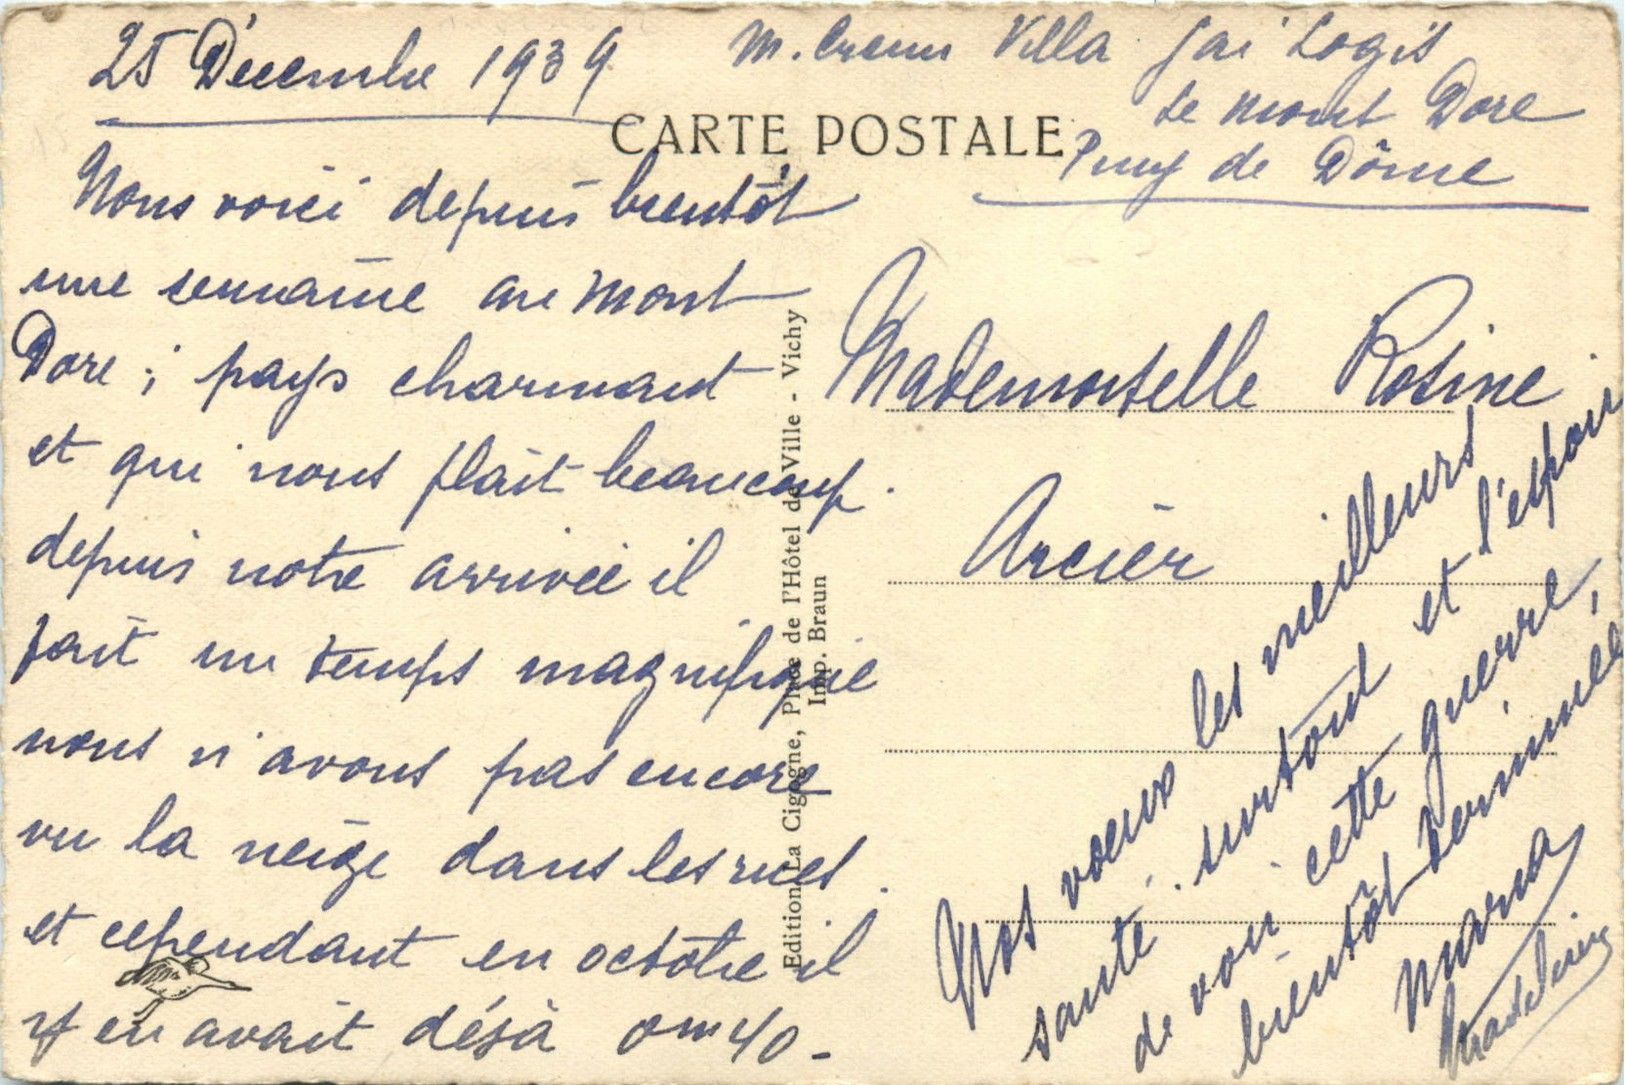 25 Décembre 1939
M. Villa Gai Logis
Le Mont Dore
Puy de Dôme
CARTE POSTALE
Nous voici depuis bientôt
une semaine au Mont
Dore ; pays charmant
et qui nous plaît beaucoup.
depuis notre arrivée il
fait un temps magnifique
nous n'avons pas encore
vu la neige dans les rues.
et cependant en octobre il
y en avait déjà 0m40-
Edition La Cigogne, Place de l'Hôtel de Ville - Vichy
Imp. Braun
Mademoiselle Rosine
Arcier
Nos voeux les meilleurs
santé surtout et l'espoir
de voir cette guerre,
bientôt terminée,
Madeleine